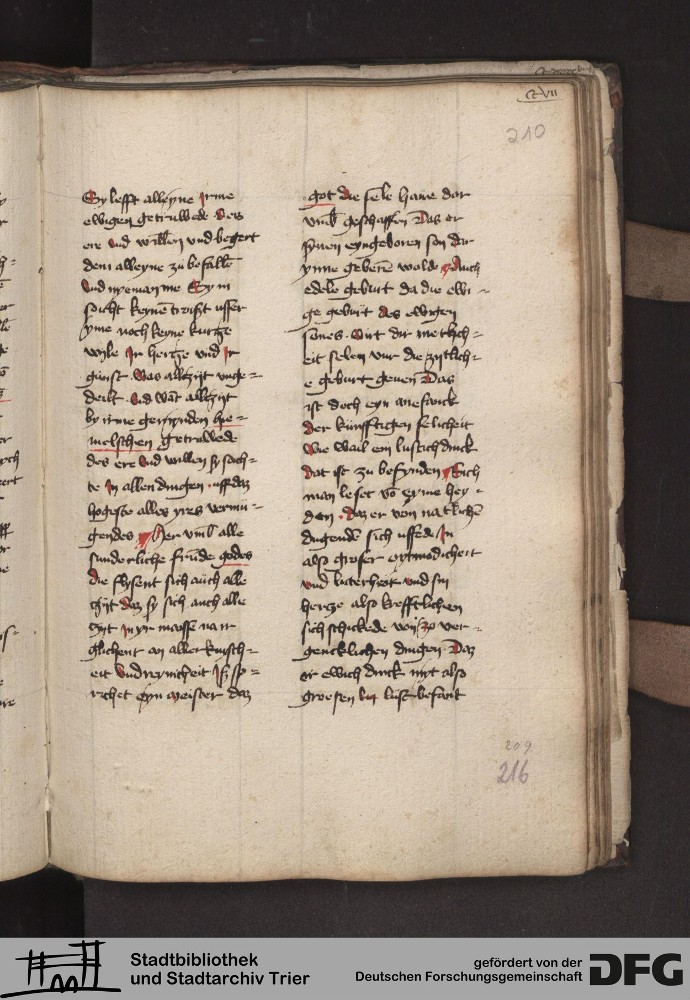 ccvii
210
Sy lesst alleyne Irme
ewigen getruwede des
ere vnd willen vnd begert
dem alleyne zu befallē
vnd nyemanme Sy in
sucht keynē troist usser
yme noch keyne kurtze
wyle In hertze vnd Ir
gunst was alletzijt unge=
deilt vnd wāt alletzijt
by irme gemynden hye=
melschen getruwede
des ere vnd willen sy such=
te In allen dingen uff daz
hogeste alles yres vermu=
gendes Her vmb alle
sunderliche frūde godes
die flysent sich auch alle
zijt daz sy sich auch alle
zijt In yr maesse narr
glichent an aller kusch=
eit vnd reynicheit Iß sp=
richet eyn meister daz
got die sele haue dar
vmb geschaffen Das er
synen eyngeboren son dar
ynne geberē wolde Auch
edele geburt da die ewi=
ge geburt des ewigen
sones wirt dir metlich=
eit selen vur die zijtlich=
e geburt geuen Das
ist doch eyn anefanck
der kunfftigen selicheit
Wie wail ein lustich dinck
dat ist zu befynden Sich
man leset vō eyme hey=
den daz er von natlichē
dugenden sich uffede In
also groser oytmodicheit
vnd luterheit vnd syn
hertze also krefftlichen
sich schickede von zo ver=
gencklichen dingen Daz
er ewich dinck mit also
groesen lust befant
209
216
Stadtbibliothek
und Stadtarchiv Trier
gefördert von der
Deutschen Forschungsgemeinschaft
DFG